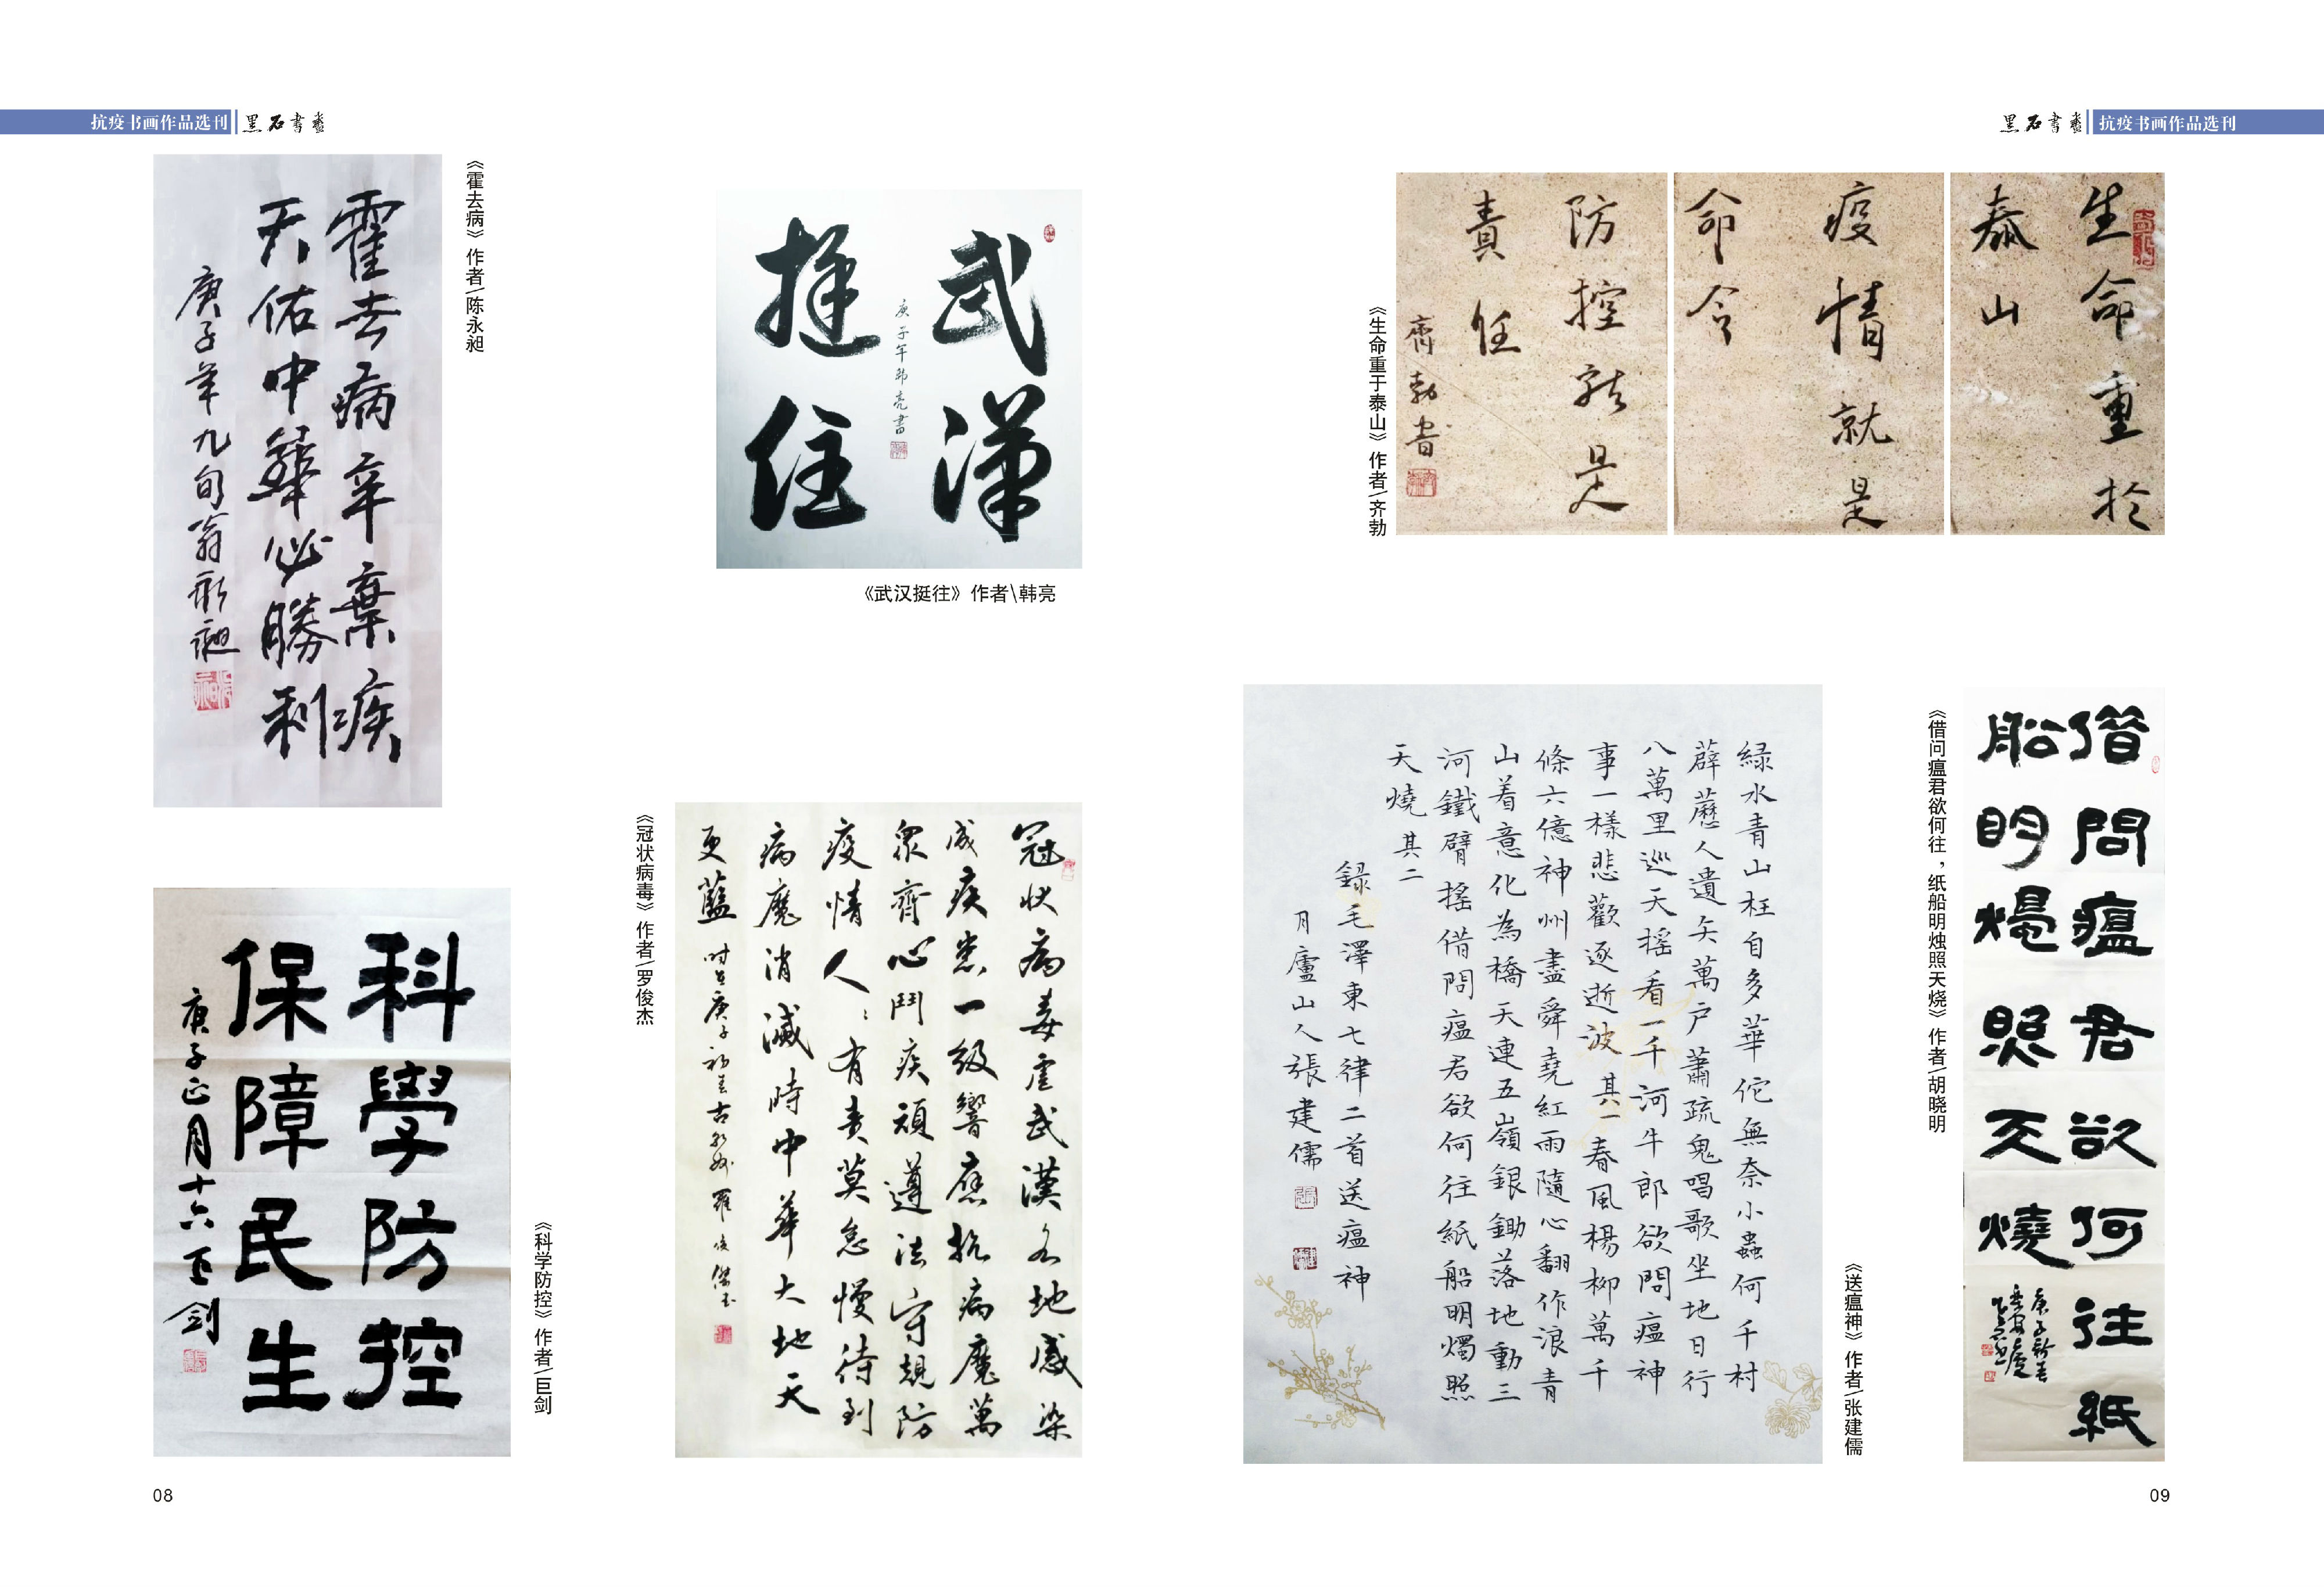 抗疫书画作品选刊
黑石书画
霍去病辛弃疾
天佑中華必勝利
庚子年九旬翁永昶
《霍去病》作者\陈永昶
武漢
挺住
庚子年韩亮書
《武汉挺往》作者\韩亮
科學防控
保障民生
庚子正月十六巨剑
《科学防控》作者\巨剑
冠状病毒虐武漢各地感染
成疾患一级響應抗病魔萬
眾齊心鬥疾頑遵法守規防
疫情人人有责莫怠慢待到
病魔消滅時中華大地天
更藍
庚子初春
羅俊傑書
《冠状病毒》作者\罗俊杰
08
黑石書画
抗疫书画作品选刊
生命重於
泰山
疫情就是
命令
防控就是
責任
齊勃書
《生命重于泰山》作者\齐勃
緑水青山枉自多華佗無奈小蟲何千村
薜蘑人遺矢萬户蕭疏鬼唱歌坐地日行
八萬里巡天摇看一千河牛郎欲問瘟神
事一樣悲歡逐逝波其一春風楊柳萬千
條六億神州盡舜堯紅雨隨心翻作浪青
山着意化為橋天連五嶺銀鋤落地動三
河鐵臂摇借問瘟君欲何往紙船明燭照
天燒其二
録毛澤東七律二首送瘟神
月廬山人張建儒
《送瘟神》作者\张建儒
借問瘟君欲何往紙
船明燭照天燒
庚子新春
《借问瘟君欲何往，纸船明烛照天烧》作者\胡晓明
09